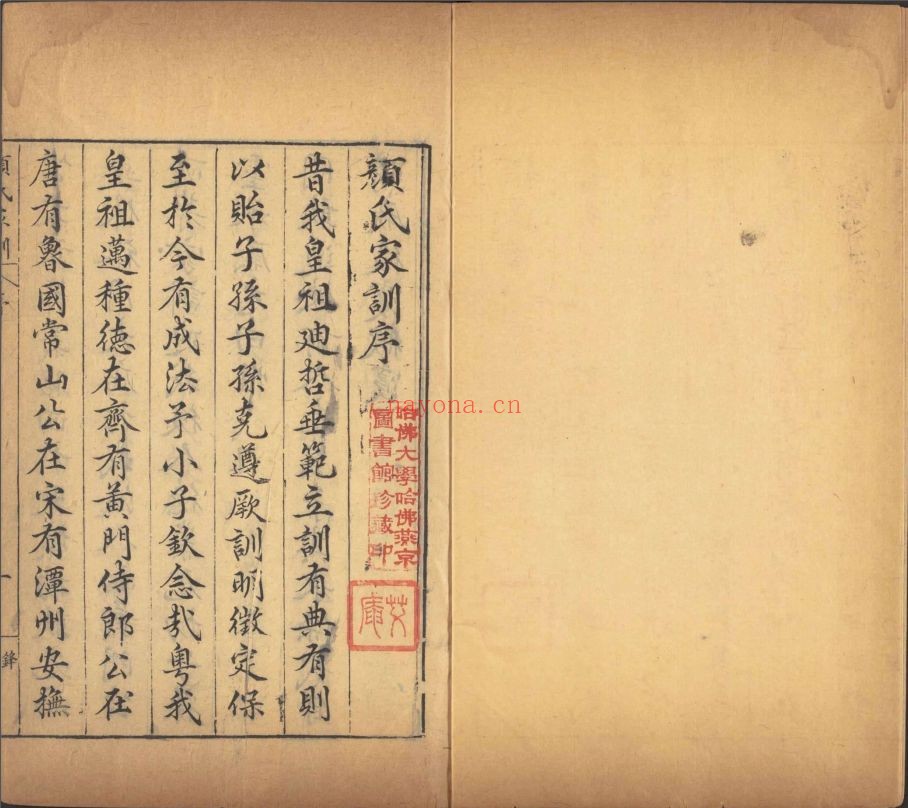 顏氏家訓序
昔我皇祖廸哲垂範立訓有典有則
以貽子孫子孫克遵厥訓明徵定保
至於今有成法予小子欽念㢤粤我
皇祖邁種德在齊有黃門侍郎公在
唐有魯國常山公在宋有潭州安撫
哈佛大學哈佛燕京
圖書館珍藏印
nayona.cn
鋒